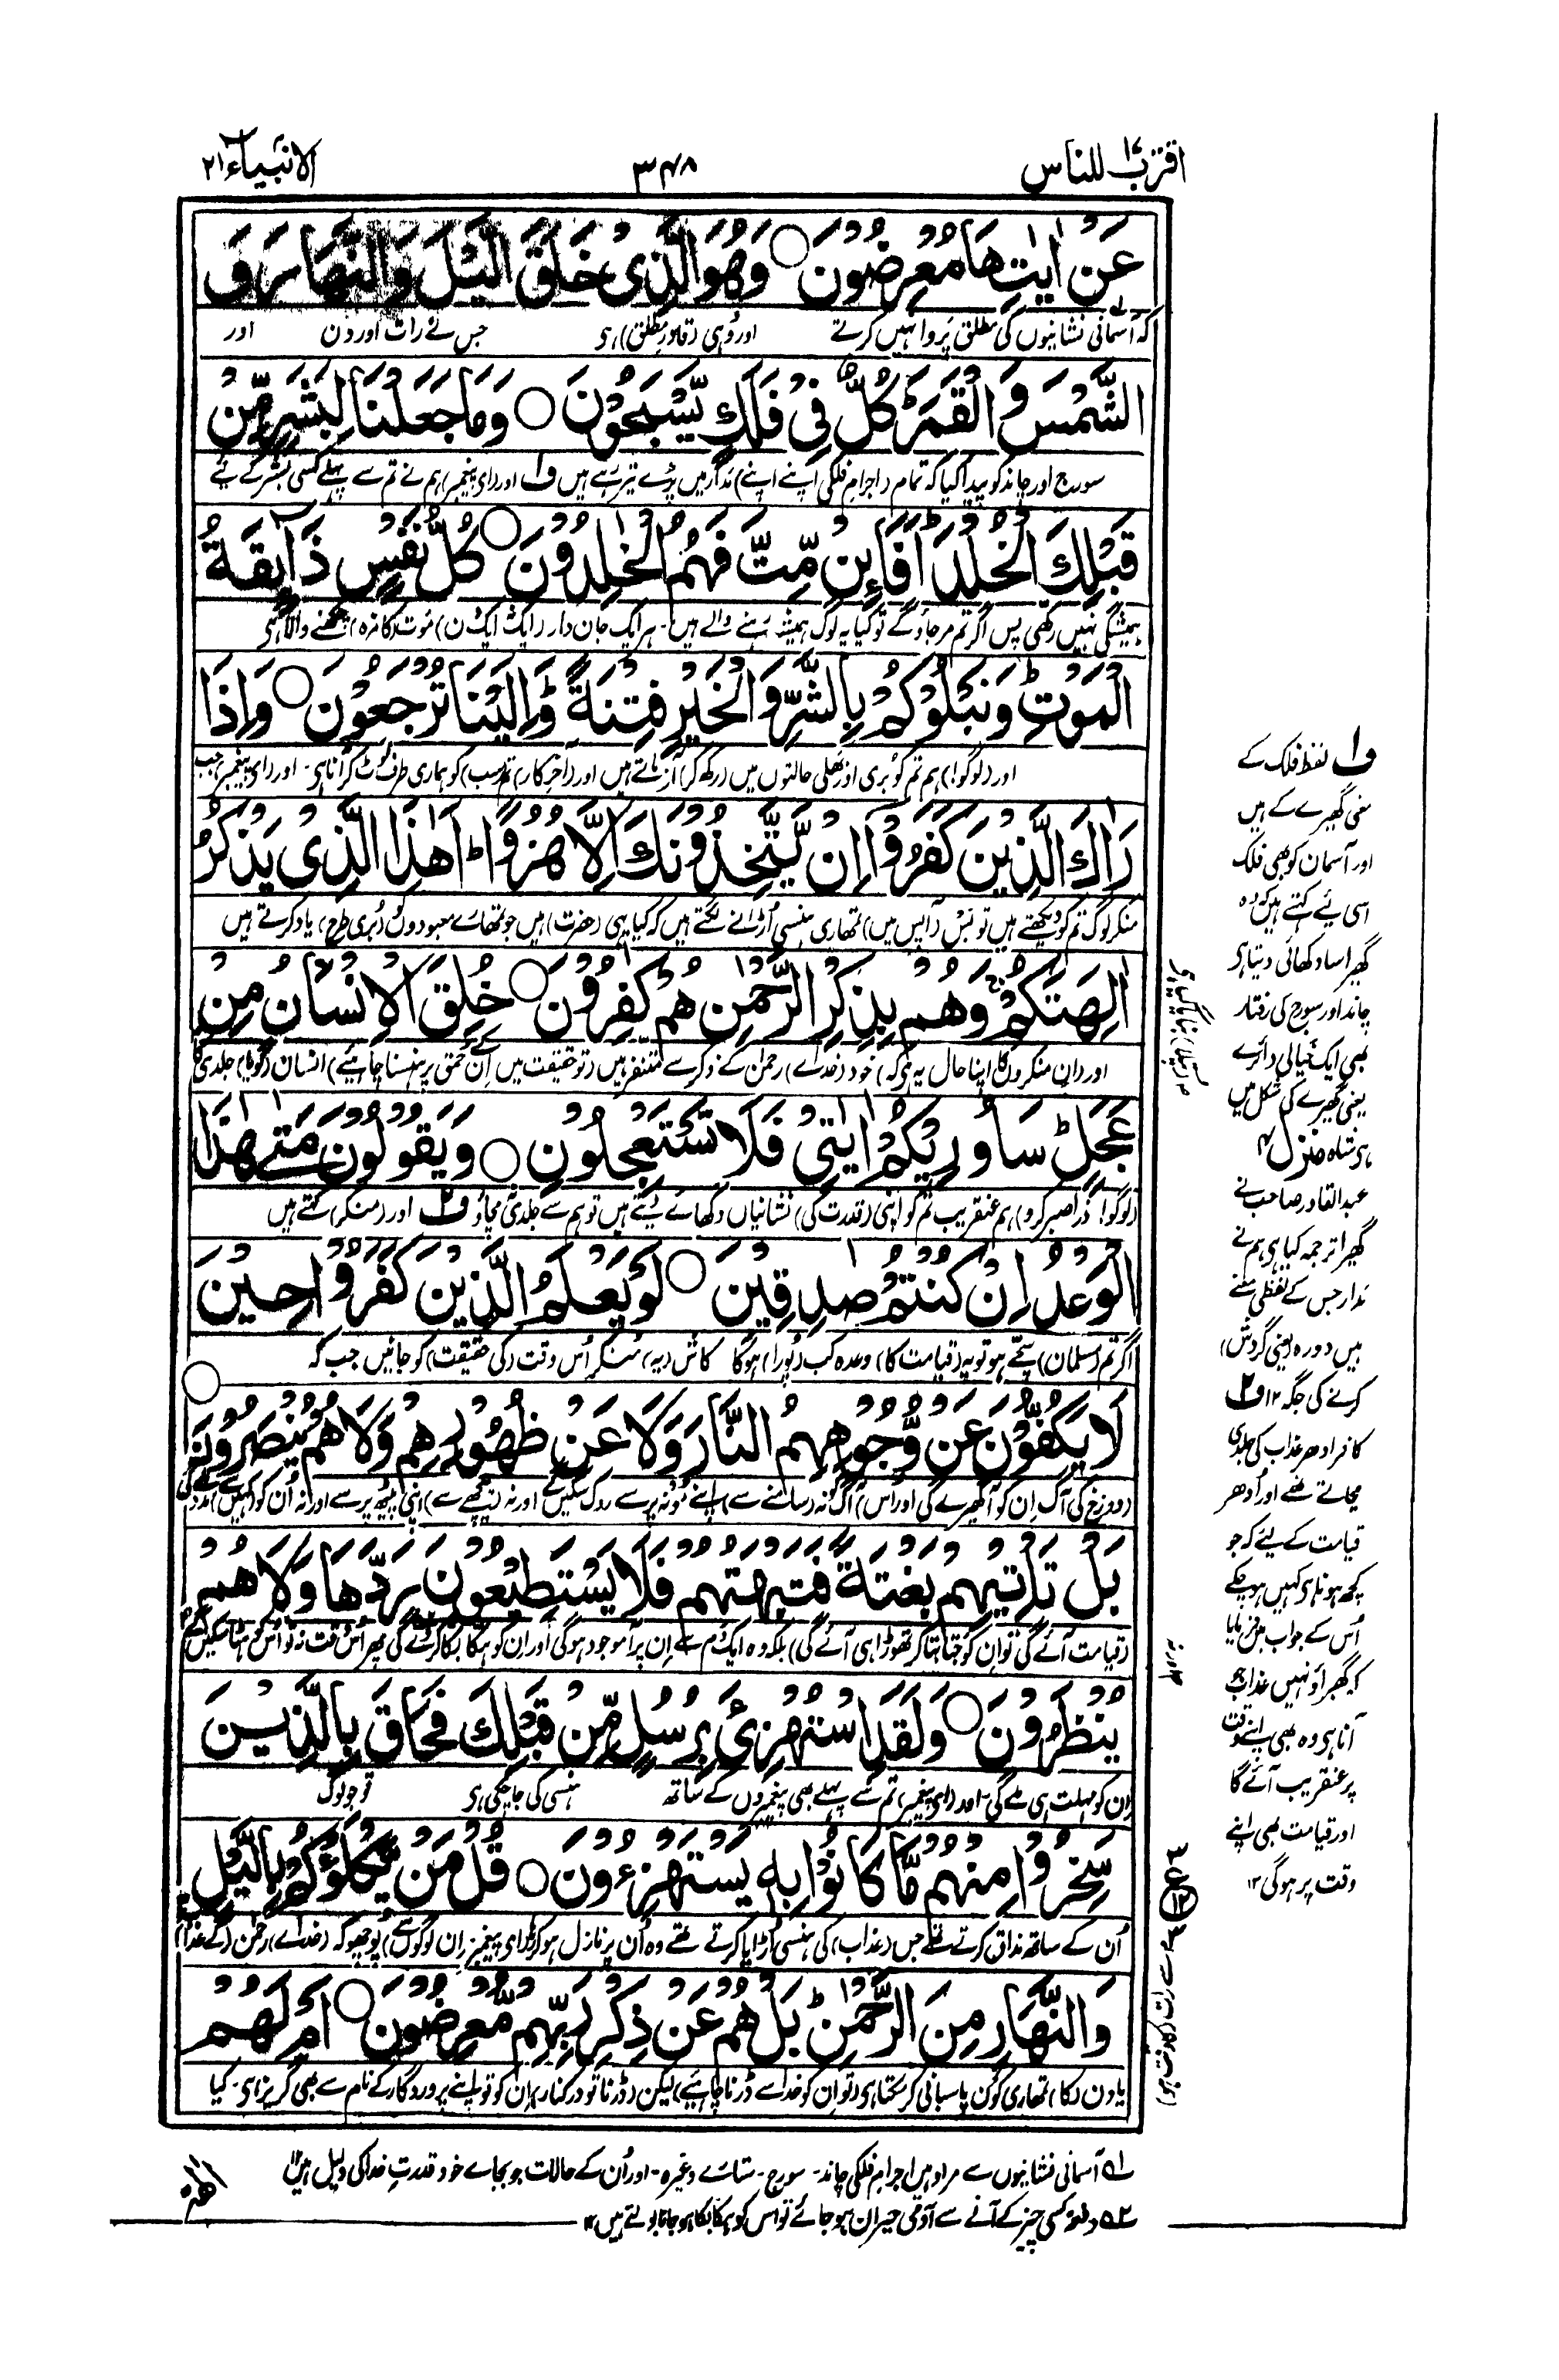 اقترب للناس ١٧
٣٤٨
الانبیاء ٢١
عَنْ اٰیٰتِهَا مُعْرِضُوْنَ ○ وَهُوَ الَّذِیْ خَلَقَ الَّیْلَ وَالنَّهَارَ وَ
کہ آسمانی نشانیوں کی مطلق پروا نہیں کرتے اور وہی (قادر مطلق) ہی جس نے رات اور دن اور
الشَّمْسَ وَالْقَمَرَ ؕ كُلٌّ فِیْ فَلَكٍ یَّسْبَحُوْنَ ○ وَمَا جَعَلْنَا لِبَشَرٍ مِّنْ
سورج اور چاند کو پیدا کیا کہ تمام (اجرام فلکی اپنے اپنے) مدار میں پڑے تیر رہے ہیں ف١ اور (ای پیغمبر) ہم نے تم سے پہلے کسی بشر کے لیے
قَبْلِكَ الْخُلْدَ ؕ اَفَا۠ئِنْ مِّتَّ فَهُمُ الْخٰلِدُوْنَ ○ كُلُّ نَفْسٍ ذَآئِقَةُ
ہمیشگی نہیں رکھی پس اگر تم مر جاؤ گے تو کیا یہ لوگ ہمیشہ رہنے والے ہیں۔ ہر ایک جان دار (ایک ایک دن) موت (کا مزہ) چکھنے والا ہی
الْمَوْتِ ؕ وَنَبْلُوْكُمْ بِالشَّرِّ وَالْخَیْرِ فِتْنَةً ؕ وَاِلَیْنَا تُرْجَعُوْنَ ○ وَاِذَا
اور (لوگو!) ہم تم کو بری اور بھلی حالتوں میں (رکھ کر) آزماتے ہیں اور (آخرکار) تم (سب) کو ہماری طرف لوٹ کر آنا ہی۔ اور (ای پیغمبر) جب
رَاٰكَ الَّذِیْنَ كَفَرُوْۤا اِنْ یَّتَّخِذُوْنَكَ اِلَّا هُزُوًا ؕ اَهٰذَا الَّذِیْ یَذْكُرُ
منکر لوگ تم کو دیکھتے ہیں تو بس (آپس میں) تمھاری ہنسی اُڑانے لگتے ہیں کہ کیا یہی (حضرت) ہیں جو تمھارے معبودوں کو (بری طرح) یاد کرتے ہیں
اٰلِهَتَكُمْ ۚ وَهُمْ بِذِكْرِ الرَّحْمٰنِ هُمْ كٰفِرُوْنَ ○ خُلِقَ الْاِنْسَانُ مِنْ
اور (ان منکروں کا اپنا حال یہ ہی کہ) خود (خدائے) رحمٰن کے ذکر سے متنفر ہیں (تو حقیقت میں اِن کے حمق پر ہنسنا چاہیے) انسان (گویا) جلدی کا
عَجَلٍ ؕ سَاُورِیْكُمْ اٰیٰتِیْ فَلَا تَسْتَعْجِلُوْنِ ○ وَیَقُوْلُوْنَ مَتٰی هٰذَا
(لوگو! ذرا صبر کرو) ہم عنقریب تم کو اپنی (قدرت کی) نشانیاں دکھائے دیتے ہیں تو ہم سے جلدی نہ مچاؤ ف٢ اور (منکر) کہتے ہیں
الْوَعْدُ اِنْ كُنْتُمْ صٰدِقِیْنَ ○ لَوْ یَعْلَمُ الَّذِیْنَ كَفَرُوْا حِیْنَ
اگر تم (مسلمان) سچے ہو تو یہ (قیامت کا) وعدہ کب (پورا) ہوگا کاش (یہ) منکر اُس وقت (کی حقیقت) کو جانیں جب کہ
لَا یَكُفُّوْنَ عَنْ وُّجُوْهِهِمُ النَّارَ وَلَا عَنْ ظُهُوْرِهِمْ وَلَا هُمْ یُنْصَرُوْنَ ○
(دوزخ کی آگ اِن کو آگھیرے گی اور اُس) آگ کو نہ (سامنے سے) اپنے مونہ پر سے روک سکیں گے اور نہ (پیچھے سے) اپنی پیٹھ پر سے اور نہ اُن کو (کہیں سے) مدد ملے گی
بَلْ تَاْتِیْهِمْ بَغْتَةً فَتَبْهَتُهُمْ فَلَا یَسْتَطِیْعُوْنَ رَدَّهَا وَلَا هُمْ
(قیامت آئے گی تو ان کو جتا بتا کر تھوڑا ہی آئے گی) بلکہ وہ ایک دم سے اِن پر آموجود ہوگی اور اِن کو ہکا بکا کر دے گی پھر اُس وقت نہ تو اُس کو ہٹا سکیں گے
یُنْظَرُوْنَ ○ وَلَقَدِ اسْتُهْزِئَ بِرُسُلٍ مِّنْ قَبْلِكَ فَحَاقَ بِالَّذِیْنَ
اِن کو مہلت ہی ملے گی۔ اور (ای پیغمبر) تم سے پہلے بھی پیغمبروں کے ساتھ ہنسی کی جا چکی ہی تو جو لوگ
سَخِرُوْا مِنْهُمْ مَّا كَانُوْا بِهٖ یَسْتَهْزِءُوْنَ ○ قُلْ مَنْ یَّكْلَؤُكُمْ بِالَّیْلِ
اُن کے ساتھ مذاق کرتے تھے جس (عذاب) کی ہنسی اُڑایا کرتے تھے وہ اُن پر نازل ہو کر رہا (ای پیغمبر اِن لوگوں سے) پوچھو کہ (خدائے) رحمٰن (کے عذاب)
وَالنَّهَارِ مِنَ الرَّحْمٰنِ ؕ بَلْ هُمْ عَنْ ذِكْرِ رَبِّهِمْ مُّعْرِضُوْنَ ○ اَمْ لَهُمْ
یا دن (کا) تمھاری کون پاسبانی کر سکتا ہی (تو ان کو خدا سے ڈرنا چاہیے) لیکن (ڈرنا تو درکنار) اِن کو تو اپنے پروردگار کے نام سے بھی گریز ہی۔ کیا
ف١ لفظ فلک کے
معنی گھیرے کے ہیں
اور آسمان کو بھی فلک
اسی لیے کہتے ہیں کہ وہ
گھیرا سا دکھائی دیتا ہی
چاند اور سورج کی رفتار
بھی ایک خیالی دائرے
یعنی گھیرے کی شکل میں
ہی شاہ
منزل ٤
عبد القادر صاحب نے
گھیرا ترجمہ کیا ہی ہم نے
مدار جس کے لفظی معنے
ہیں دورہ (یعنی گردش)
کرنے کی جگہ ١٢ ف٢
کافر ادھر عذاب کی جلدی
مچاتے تھے اور اُدھر
قیامت کے لیے کہ جو
کچھ ہونا ہی کہیں ہو چکے
اُس کے جواب میں فرمایا
کہ گھبراؤ نہیں عذاب جو
آنا ہی وہ بھی اپنے وقت
پر عنقریب آئے گا
اور قیامت بھی اپنے
وقت پر ہوگی ١٢
کا پتلا بنایا گیا ہی
اور نہ
سے رات (کا وقت ہو)
ف١ آسمانی نشانیوں سے مراد ہیں اجرام فلکی چاند۔ سورج۔ ستارے وغیرہ۔ اور اُن کے حالات جو بجائے خود قدرتِ خدا کی دلیل ہیں ١٢
ف٢ دفعۃً کسی چیز کے آنے سے آدمی حیران ہو جائے تو اس کو ہکا بکا ہو جانا بولتے ہیں ١٢